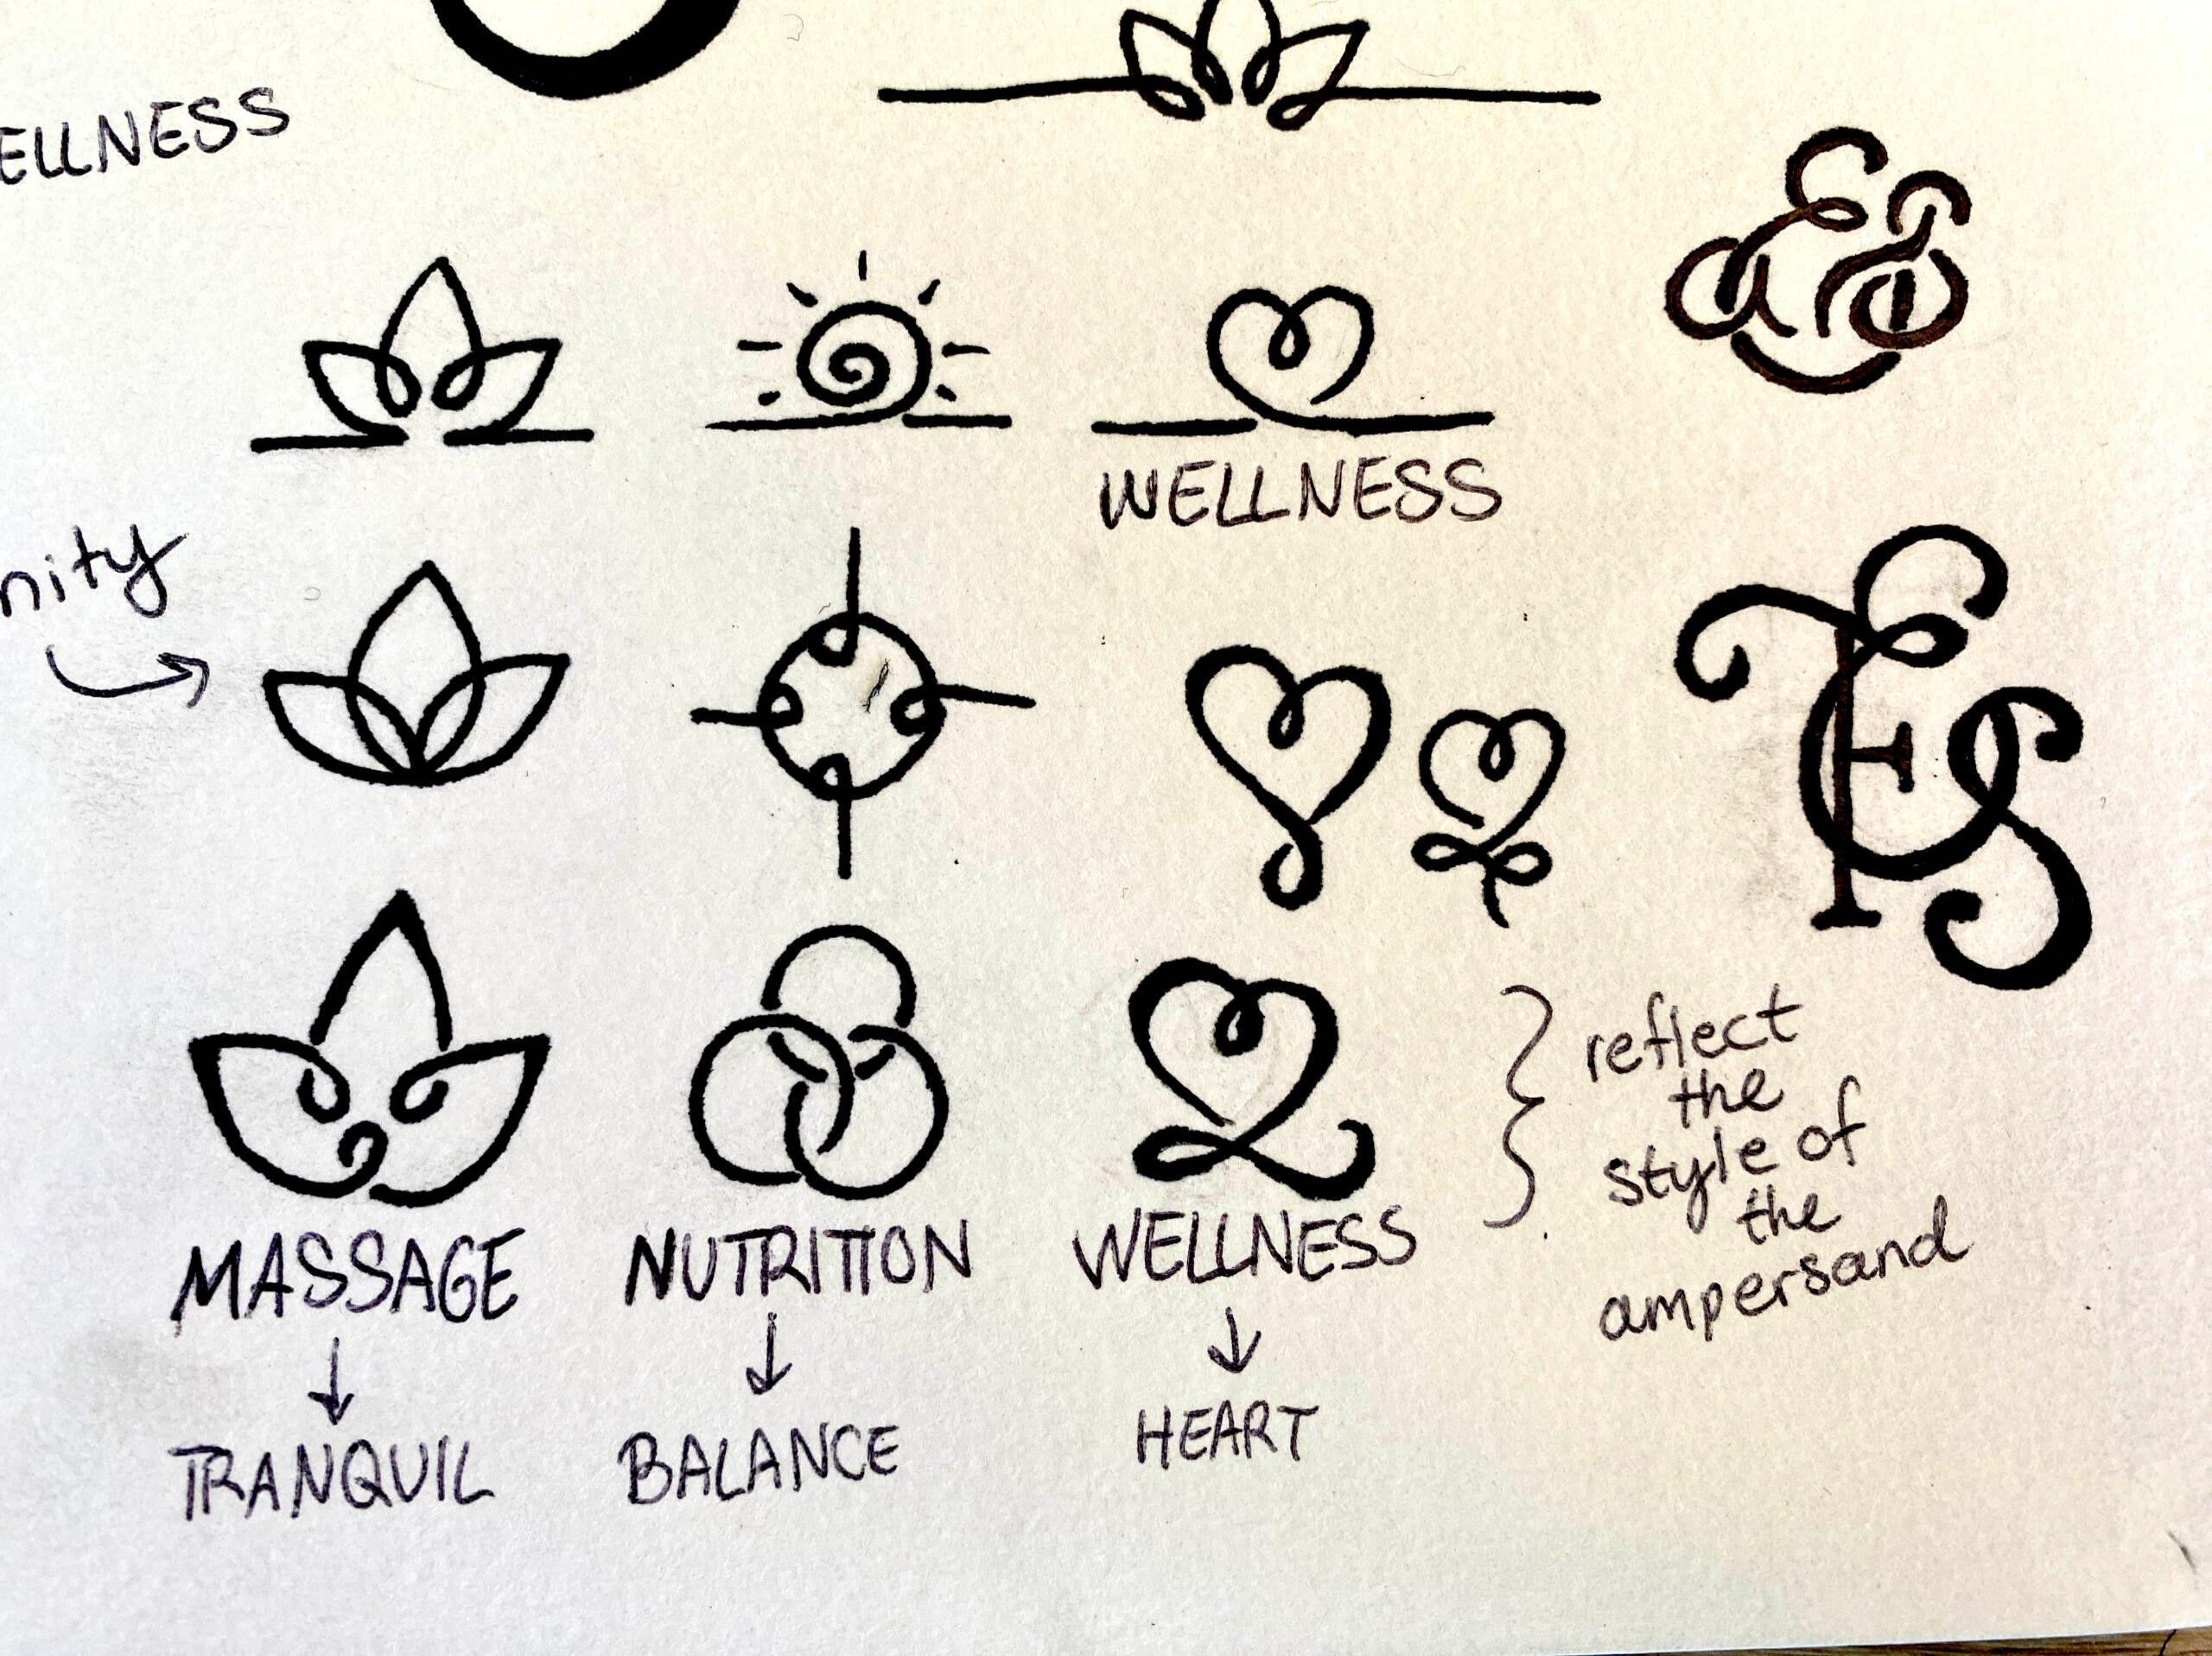 ELLNESS
WELLNESS
nity
reflect
the
style of
the
ampersand
MASSAGE NUTRITION WELLNESS
TRANQUIL BALANCE HEART